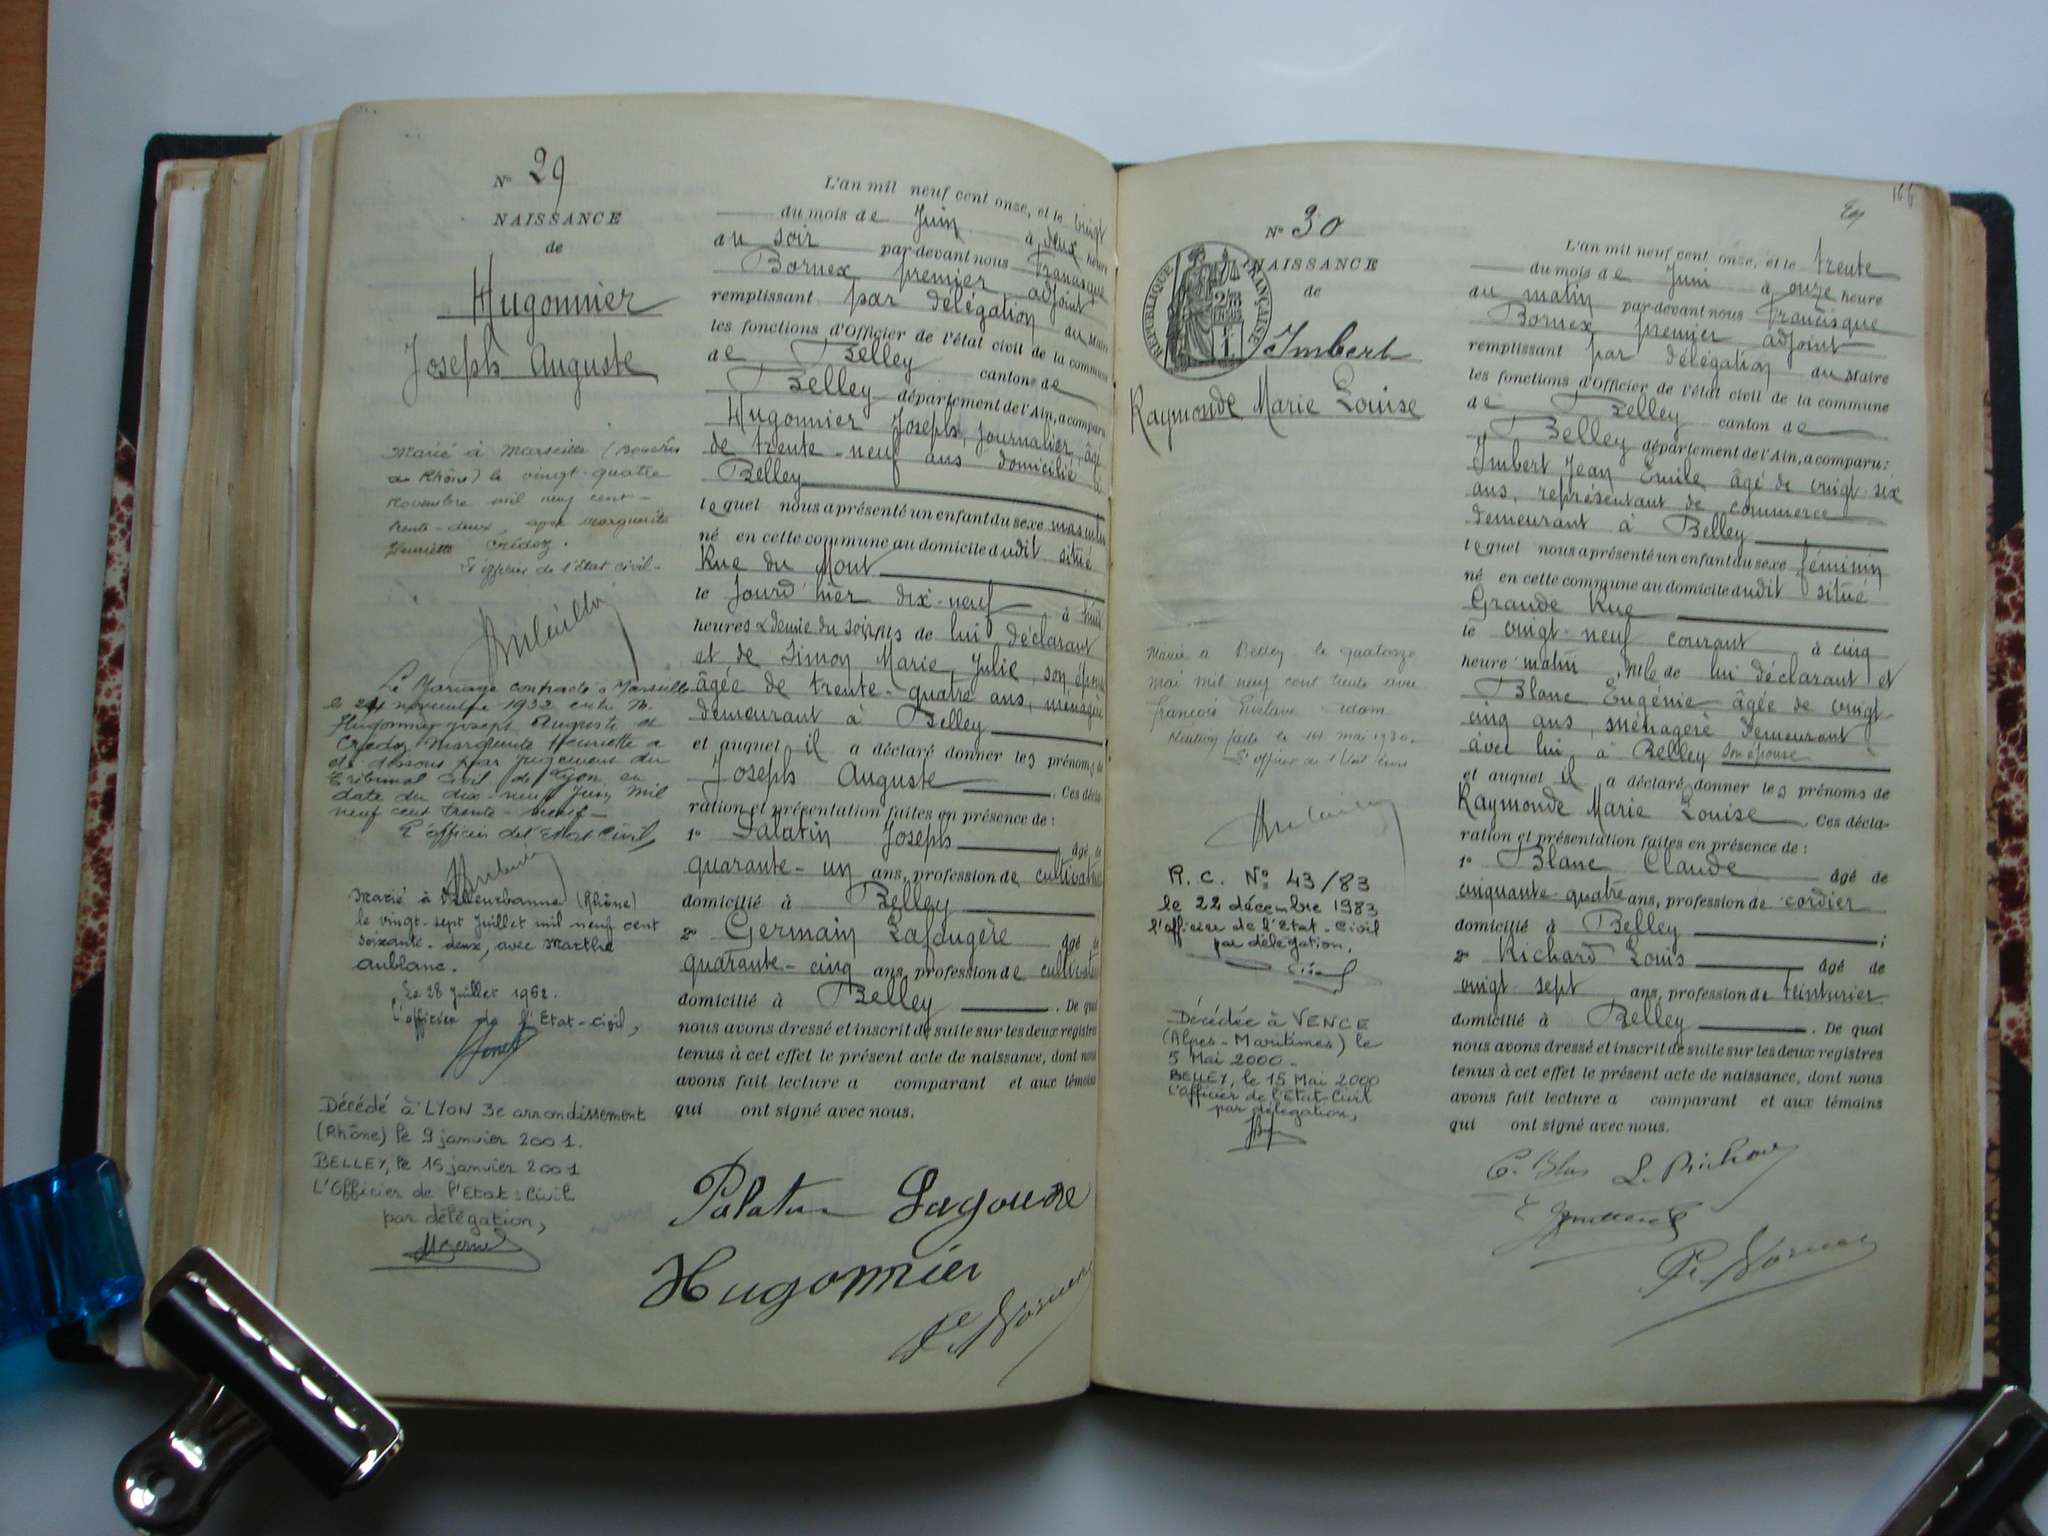 N° 29
NAISSANCE
de
Hugonnier
Joseph Auguste
Marié à Marseille (Bouches
du Rhône) le vingt-quatre
novembre mil neuf cent-
trente-deux, avec Marguerite
Henriette Crédoz.
L'officier de l'Etat civil-
Le Mariage contracté à Marseille
le 24 novembre 1932 entre M.
Hugonnier Joseph Auguste et
Crédoz Marguerite Henriette a
été dissous par jugement du
Tribunal Civil de Lyon en
date du dix-neuf Juin mil
neuf cent trente-neuf-
L'officier de l'Etat Civil,
Marié à Villeurbanne (Rhône)
le vingt-sept Juillet mil neuf cent
soixante-deux, avec Marthe
Aublanc.
Le 28 Juillet 1962.
L'officier de l'Etat-Civil,
Décédé à LYON 3e arrondissement
(Rhône) le 9 janvier 2001.
BELLEY, le 15 janvier 2001
L'Officier de l'Etat-Civil
par délégation,
L'an mil neuf cent onze, et le vingt
du mois de Juin à deux heure
du soir par-devant nous Francisque
Bornex premier adjoint
remplissant par délégation du Maire
les fonctions d'Officier de l'état civil de la commune
de Belley canton de
Belley département de l'Ain, a comparu
Hugonnier Joseph, journalier, âgé
de trente-neuf ans domicilié à
Belley
lequel nous a présenté un enfant du sexe masculin
né en cette commune au domicile dudit situé
Rue du Mont
le jourd'hier dix-neuf à huit
heures & demie du soir fils de lui déclarant
et de Simon Marie Julie, son épouse
âgée de trente-quatre ans, ménagère
demeurant à Belley
et auquel il a déclaré donner les prénoms de
Joseph Auguste Ces décla-
ration et présentation faites en présence de :
1° Palatin Joseph âgé de
quarante-un ans, profession de cultivateur
domicilié à Belley
2° Germain Lafougère âgé de
quarante-cinq ans, profession de cultivateur
domicilié à Belley. De quoi
nous avons dressé et inscrit de suite sur les deux registres
tenus à cet effet le présent acte de naissance, dont nous
avons fait lecture a comparant et aux témoins
qui ont signé avec nous.
Palatin
Hugonnier
166
N° 30
RÉPUBLIQUE FRANÇAISE
NAISSANCE
de
Imbert
Raymonde Marie Louise
Mariée à Belley le quatorze
mai mil neuf cent trente avec
François Gustave
Mention faite le 14 mai 1930.
L'officier de l'Etat civil
R.C. N° 43/83
le 22 décembre 1983
l'officier de l'Etat-Civil
par délégation,
Décédée à VENCE
(Alpes-Maritimes) le
5 Mai 2000.
BELLEY, le 15 Mai 2000
L'officier de l'Etat-Civil
par délégation,
L'an mil neuf cent onze, et le trente
du mois de Juin à onze heure
du matin par-devant nous Francisque
Bornex premier adjoint
remplissant par délégation du Maire
les fonctions d'Officier de l'état civil de la commune
de Belley canton de
Belley département de l'Ain, a comparu :
Imbert Jean Emile âgé de vingt-six
ans, représentant de commerce
demeurant à Belley
lequel nous a présenté un enfant du sexe féminin
né en cette commune au domicile dudit situé
Grande Rue
le vingt-neuf courant à cinq
heure matin, fille de lui déclarant et
Blanc Eugénie âgée de vingt-
cinq ans, ménagère demeurant
avec lui à Belley son épouse
et auquel il a déclaré donner les prénoms de
Raymonde Marie Louise. Ces décla-
ration et présentation faites en présence de :
1° Blanc Claude âgé de
cinquante-quatre ans, profession de cordier
domicilié à Belley ;
2° Richard Louis âgé de
vingt-sept ans, profession de teinturier
domicilié à Belley. De quoi
nous avons dressé et inscrit de suite sur les deux registres
tenus à cet effet le présent acte de naissance, dont nous
avons fait lecture a comparant et aux témoins
qui ont signé avec nous.